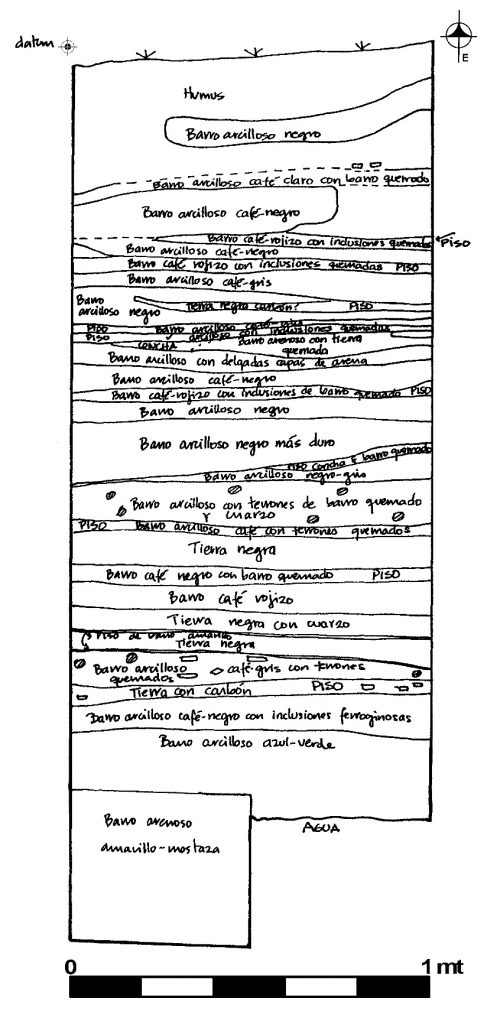 datum
E
Humus
Barro arcilloso negro
Barro arcilloso café claro con barro quemado
Barro arcilloso café-negro
Barro café-rojizo con inclusiones quemadas PISO
Barro arcilloso café-negro
Barro café rojizo con inclusiones quemadas PISO
Barro arcilloso café-gris
Barro
arcilloso negro
Tierra negra carbón? PISO
PISO Barro arcilloso
PISO arcilloso con inclusiones quemadas
CONCHA Barro arenoso con tierra
quemada
Barro arcilloso con delgadas capas de arena
Barro arcilloso café-negro
Barro café-rojizo con inclusiones de barro quemado PISO
Barro arcilloso negro
Barro arcilloso negro más duro
PISO concha y barro quemado
Barro arcilloso negro-gris
Barro arcilloso con terrones de barro quemado
Y cuarzo
PISO Barro arcilloso café con terrones quemados
Tierra negra
Barro café negro con barro quemado PISO
Barro café rojizo
Tierra negra con cuarzo
Piso de barro amarillo
Tierra negra
Barro arcilloso café-gris con terrones
quemados
Tierra con carbón PISO
Barro arcilloso café-negro con inclusiones ferroginosas
Barro arcilloso azul-verde
AGUA
Barro arenoso
amarillo-mostaza
0 1 mt